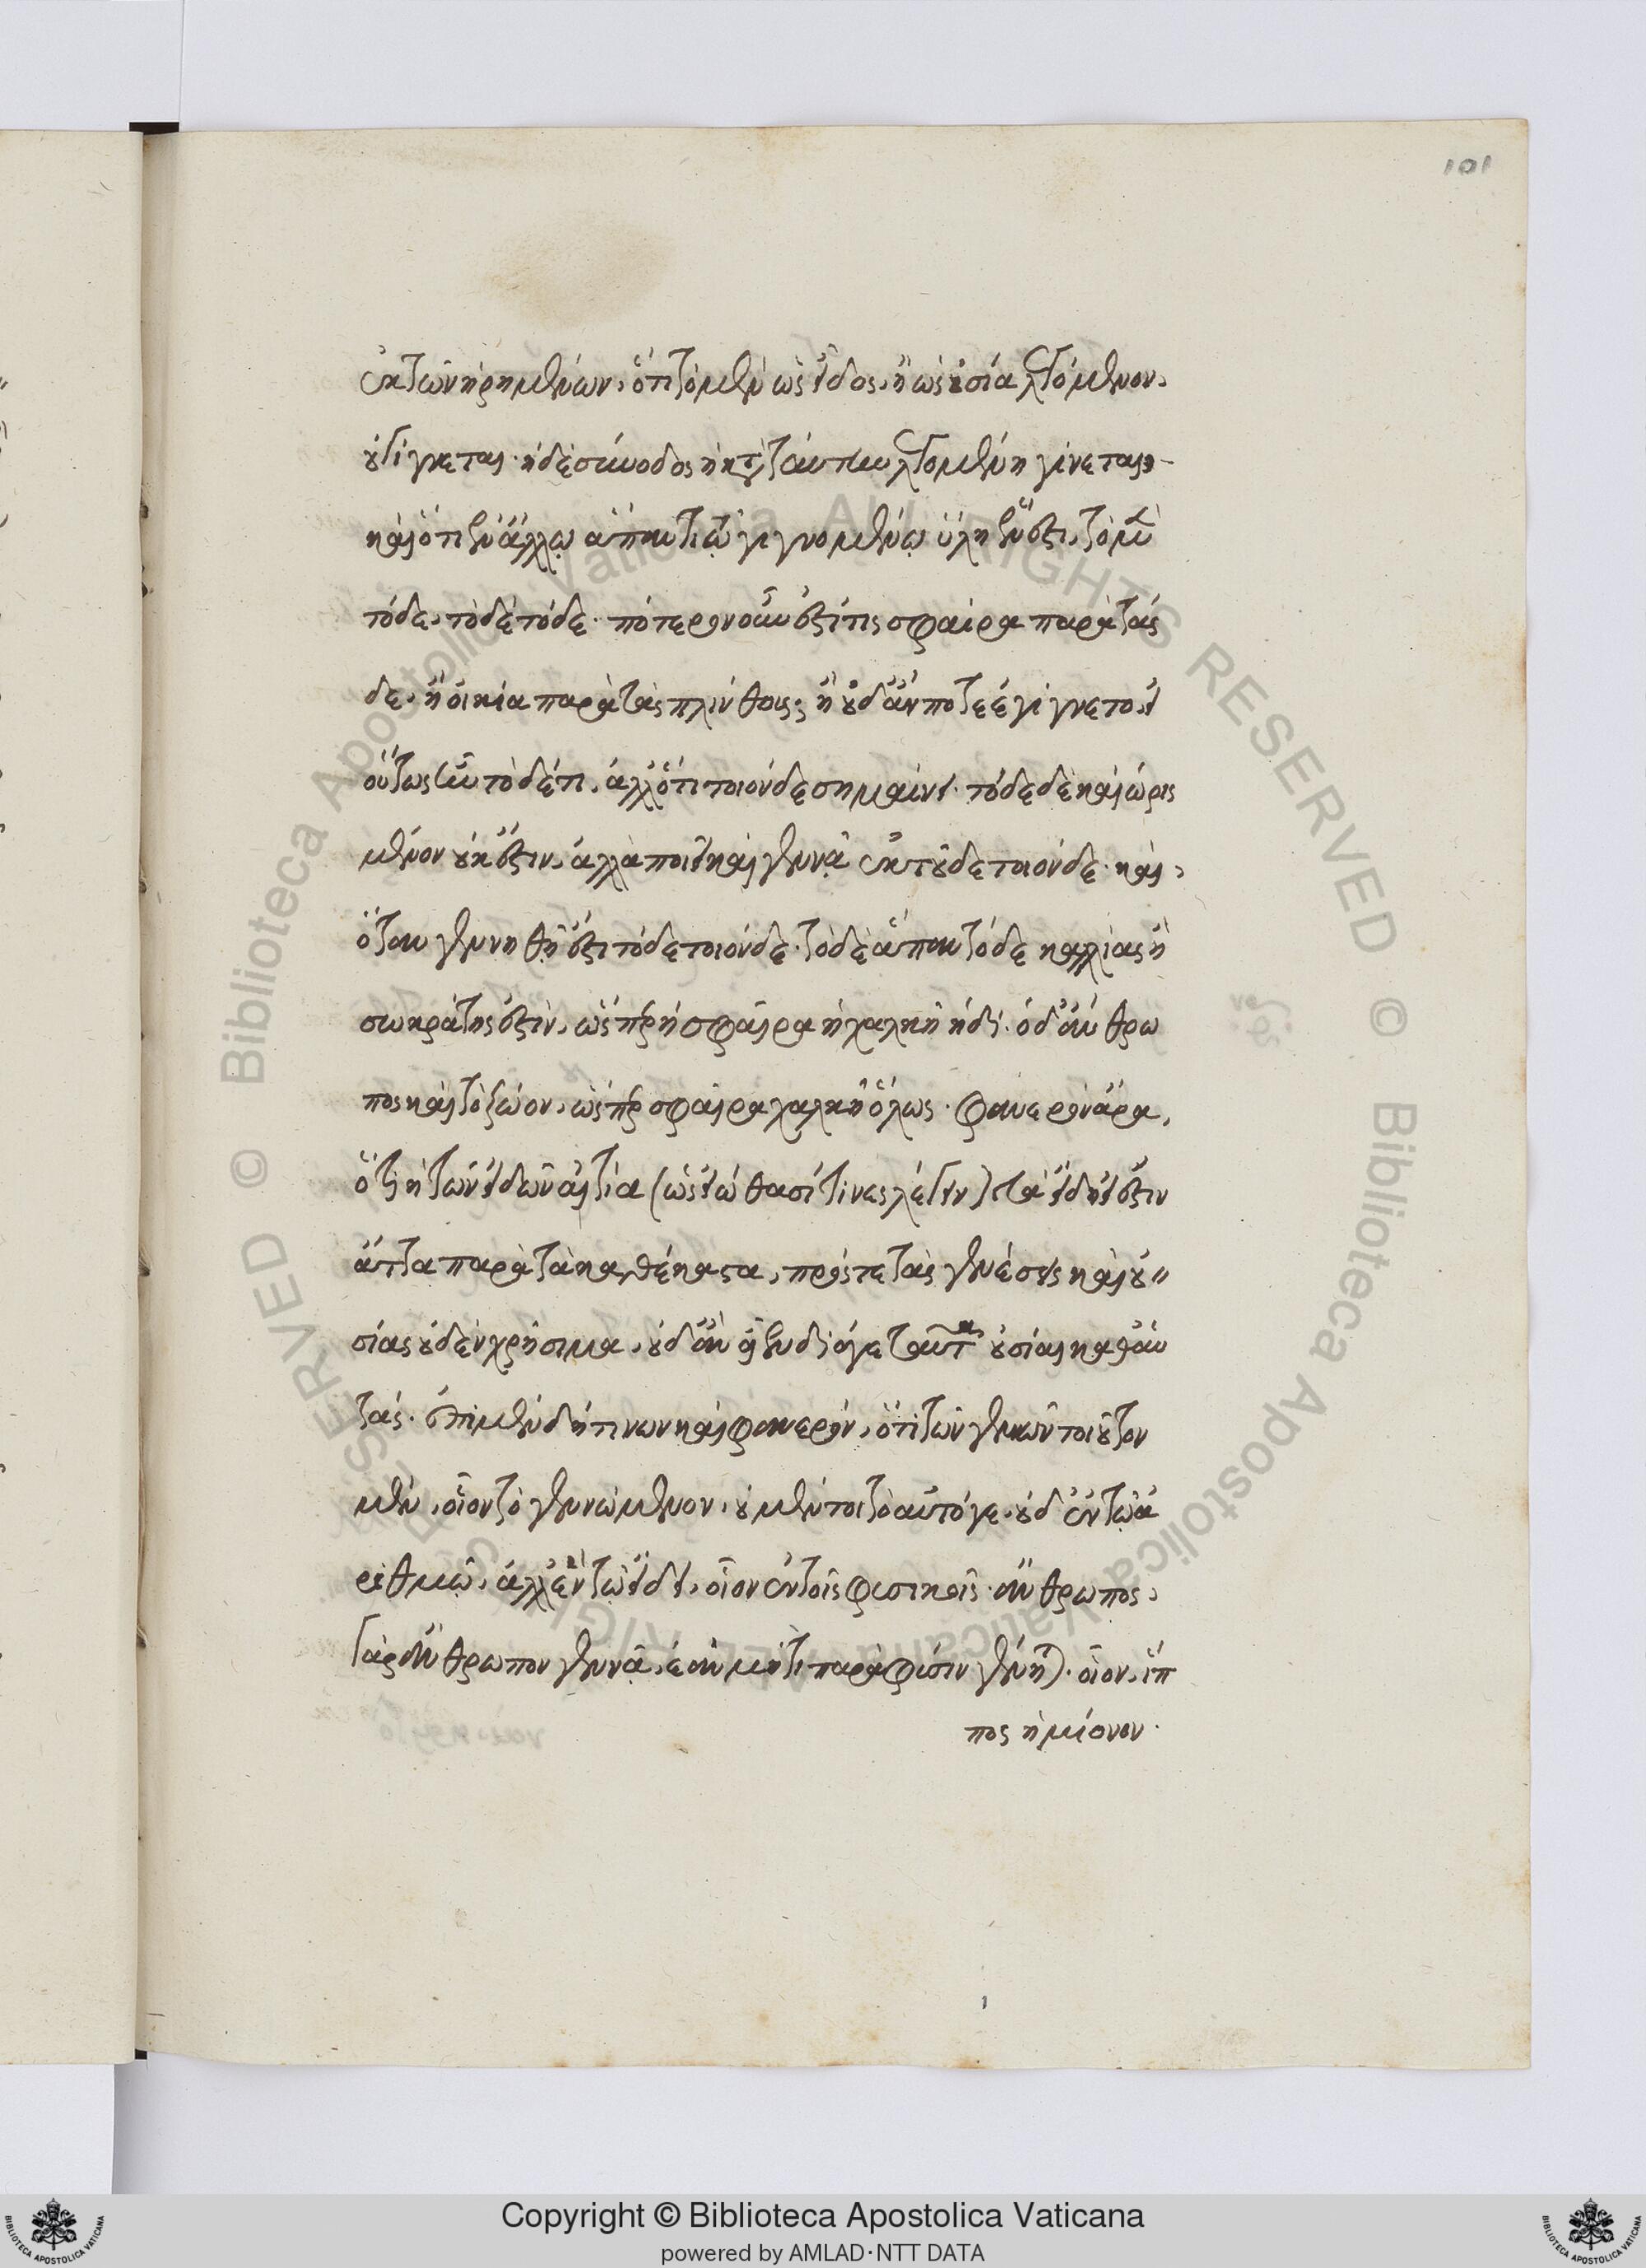 101
ἐκ τῶν εἰρημένων, ὅτι τὸ μὲν ὡς εἶδος, ἢ ὡς οὐσία λεγόμενον,
οὐ γίγνεται· ἡ δὲ σύνοδος ἡ κατὰ ταύτην λεγομένη γίνεται,
καὶ ὅτι ἐν ἄλλῳ ἅπαντι τῷ γιγνομένῳ ὕλη ἔνεστι, τὸ μὲν
τόδε, τὸ δὲ τόδε· πότερον οὖν ἐστί τις σφαίρα παρὰ τάς
δε, ἢ οἰκία παρὰ τὰς πλίνθους; ἢ οὐδ' ἄν ποτε ἐγίγνετο, εἰ
οὕτως ἦν τὸδέ τι, ἀλλ' ὅτι τοιόνδε σημαίνει· τόδε δὲ καὶ ὡρις
μένον οὐκ ἔστιν, ἀλλὰ ποιεῖ καὶ γεννᾷ ἐκ τοῦδε τοιόνδε· καὶ,
ὅταν γεννηθῇ ἔστι τόδε τοιόνδε· τὸ δὲ ἅπαν τόδε καλλίας ἢ
σωκράτης ἐστὶν, ὥσπερ ἡ σφαῖρα ἡ χαλκῆ ἡδί· ὁ δ' ἄνθρω
πος καὶ τὸ ζῶον, ὥσπερ σφαῖρα χαλκῆ ὅλως· φανερὸν ἄρα,
ὅτι ἡ τῶν εἰδῶν αἰτία (ὡς εἰώθασί τινες λέγειν) τὰ εἴδη εἰ ἔστιν
ἄττα παρὰ τὰ καθέκαστα, πρός τε τὰς γενέσεις καὶ οὐ
σίας οὐδὲν χρήσιμα, οὐδ' ἂν εἶεν διά γε ταῦτα οὐσίαι καθ' αὑ
τάς· ἐπὶ μὲν δή τινων καὶ φανερὸν, ὅτι τῶν γενικῶν τοιοῦτον
μὲν, οἷον τὸ γεννώμενον, οὐ μέντοι τὸ αὐτό γε, οὐδ' ἐν τῷ ἀ
ριθμῷ, ἀλλ' ἓν τῷ εἴδει, οἷον ἐν τοῖς φυσικοῖς· ἄνθρωπος,
γὰρ ἄνθρωπον γεννᾷ, ἐὰν μή τι παρὰ φύσιν γένηται· οἷον, ἵπ
πος ἡμίονον·
Copyright © Biblioteca Apostolica Vaticana
powered by AMLAD·NTT DATA